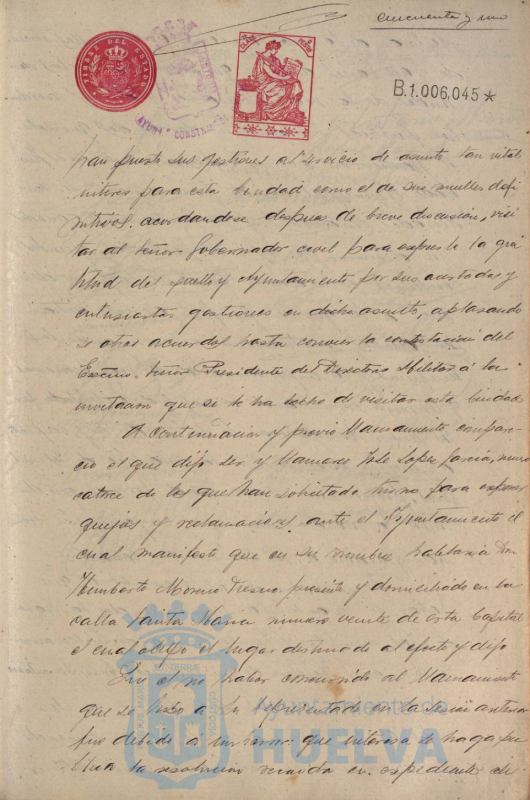 cincuenta y uno
TIMBRE DEL ESTADO
B.1.006,045*
han puesto sus gestiones al servicio de asunto tan vital
interes para esta Ciudad como el de sus muelles defi-
nitivos, acordandose despues de breve discusion, visi-
tar al Señor Gobernador civil para expresarle la gra-
titud del pueblo y Ayuntamiento por sus acertadas y
entusiastas gestiones en dicho asunto, aplazando-
se otros acuerdos hasta conocer la contestacion del
Excmo. Señor Presidente del Directorio Militar á la
invitacion que se le ha hecho de visitar esta Ciudad
A continuacion y previo llamamiento compare-
cio el que dijo ser y llamarse José Lopez Garcia, numero
catorce de los que han solicitado turno para exponer
quejas y reclamaciones ante el Ayuntamiento el
cual manifestó que en su nombre hablaria Don
Humberto Moreno presente y domiciliado en la
calle Santa Maria numero veinte de esta Capital
el cual ocupó el lugar destinado al efecto y dijo
Que el no haber concurrido al llamamiento
que se hizo a su representado en la sesion anterior
fue debido á que interesa se haga pu-
blica la resolucion recaida en expediente de
Ayuntamiento de
HUELVA